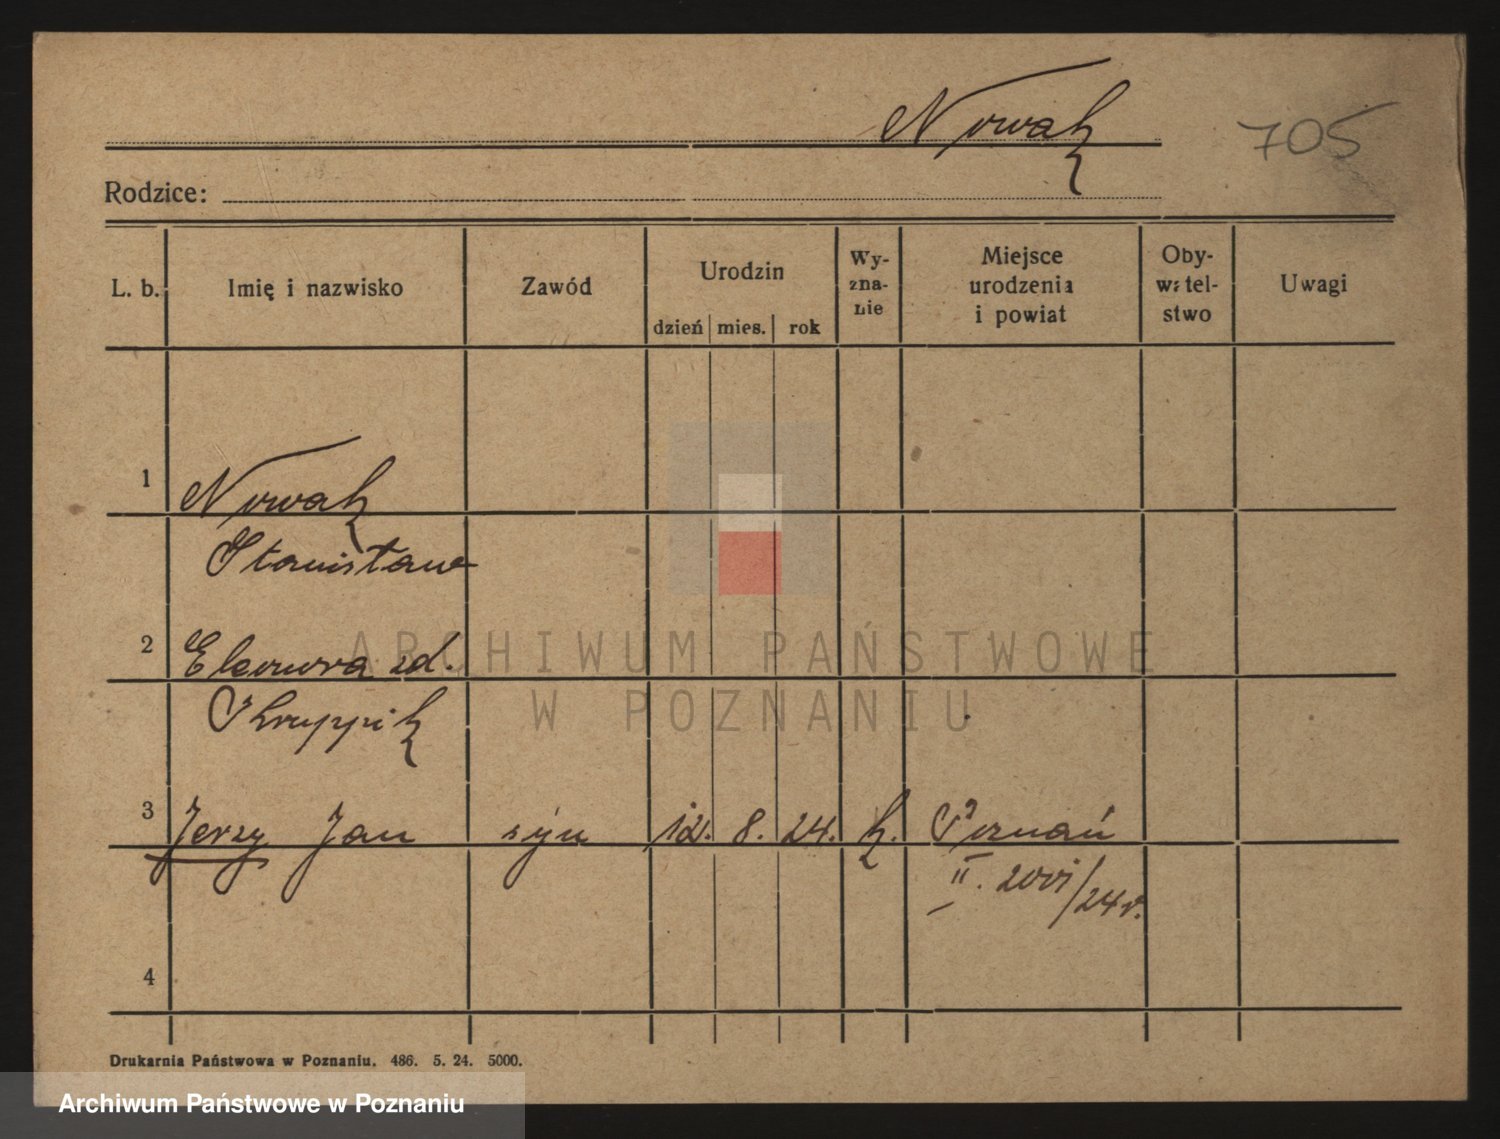 Nowak
705
Rodzice:
L. b.
Imię i nazwisko
Zawód
Urodzin
dzień mies. rok
Wy-
zna-
nie
Miejsce
urodzenia
i powiat
Oby-
watel-
stwo
Uwagi
1 Nowak
Stanisław
2 Eleonora zd.
Skruppik
3 Jerzy Jan syn 12. 8. 24. k. Poznań
II. 2001/24 r.
4
Drukarnia Państwowa w Poznaniu. 486. 5. 24. 5000.
ARCHIWUM PAŃSTWOWE
W POZNANIU
Archiwum Państwowe w Poznaniu